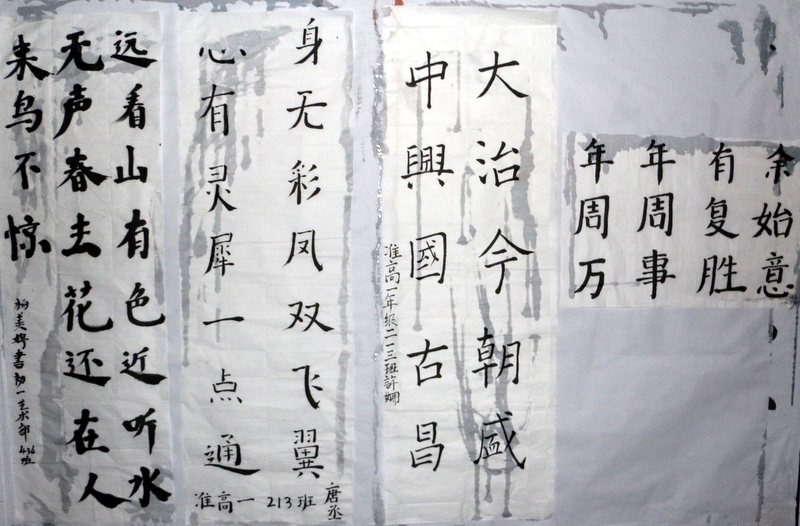 余始意
有复胜
年周事
年周万
大治今朝盛
中興國古昌
准高一年级二一三班許娴
身无彩凤双飞翼
心有灵犀一点通
准高一 213班 唐丞
远看山有色近听水
无声春去花还在人
来鸟不惊
書初一艺术部436班